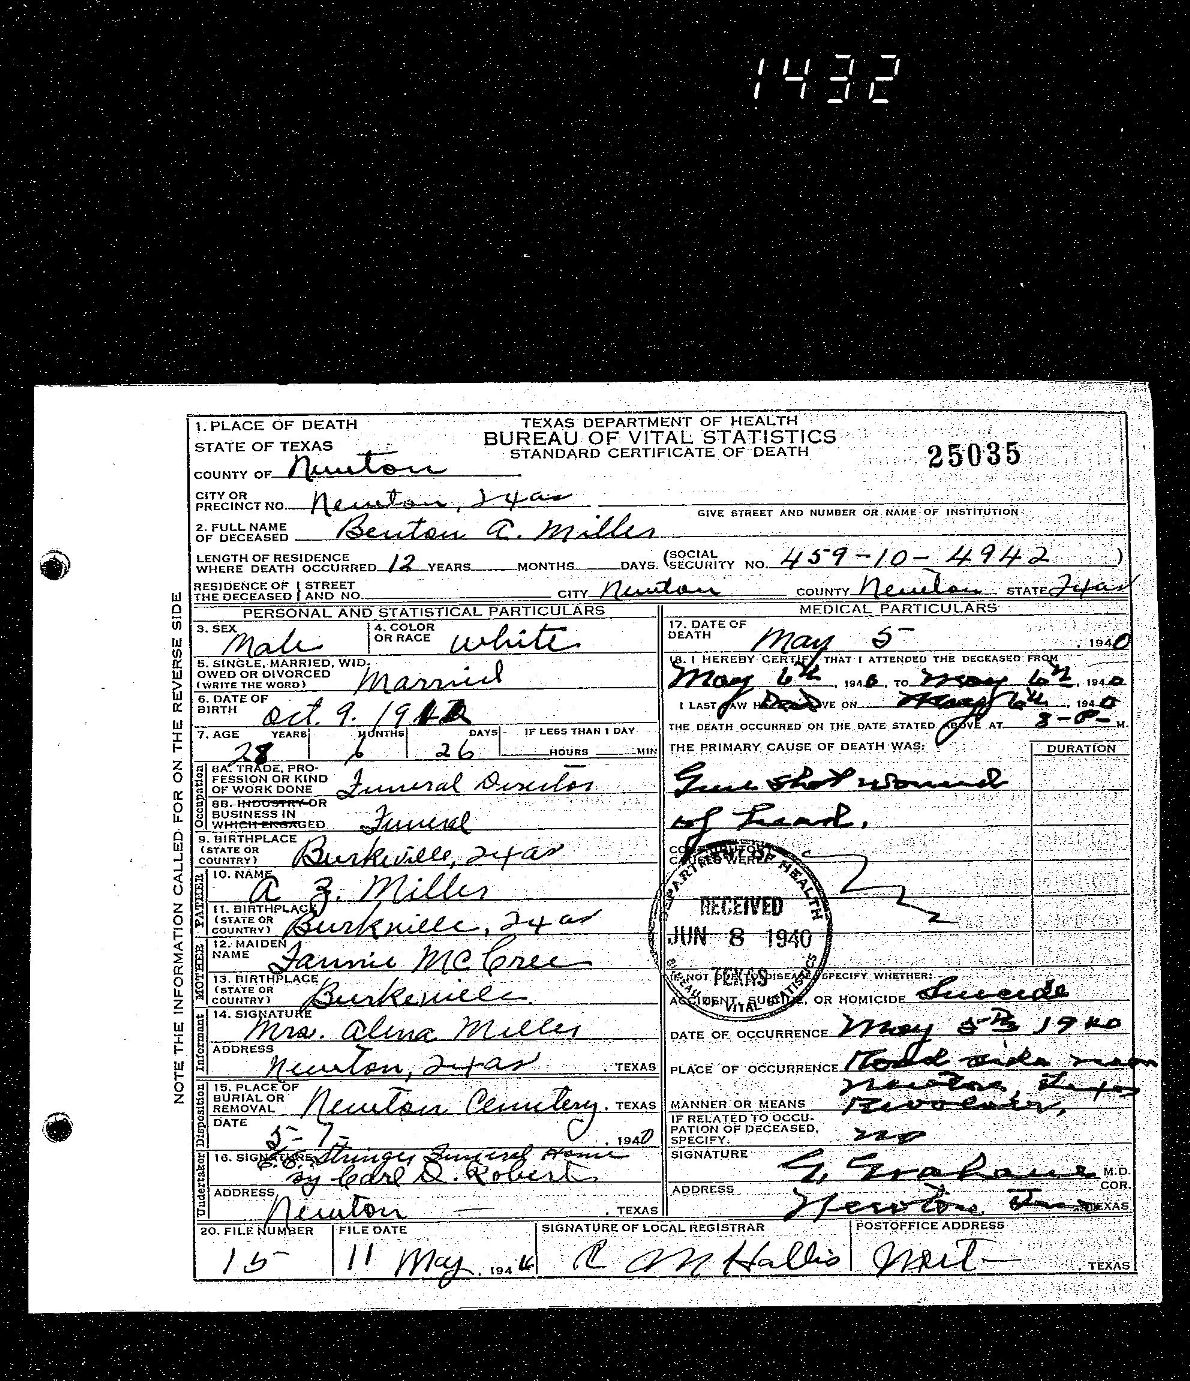 1432
1. PLACE OF DEATH
STATE OF TEXAS
COUNTY OF Newton
CITY OR PRECINCT NO. Newton, Texas
TEXAS DEPARTMENT OF HEALTH
BUREAU OF VITAL STATISTICS
STANDARD CERTIFICATE OF DEATH
25035
GIVE STREET AND NUMBER OR NAME OF INSTITUTION
2. FULL NAME OF DECEASED Benton A. Miller
LENGTH OF RESIDENCE WHERE DEATH OCCURRED 12 YEARS MONTHS DAYS. (SOCIAL SECURITY NO. 459-10-4942)
RESIDENCE OF THE DECEASED STREET AND NO. CITY Newton COUNTY Newton STATE Texas
NOTE THE INFORMATION CALLED FOR ON THE REVERSE SIDE
PERSONAL AND STATISTICAL PARTICULARS
3. SEX Male
4. COLOR OR RACE White
5. SINGLE, MARRIED, WIDOWED OR DIVORCED (WRITE THE WORD) Married
6. DATE OF BIRTH Oct. 9. 19
7. AGE 28 YEARS 6 MONTHS 26 DAYS IF LESS THAN 1 DAY HOURS MIN
Occupation
8A. TRADE, PROFESSION OR KIND OF WORK DONE Funeral Director
8B. INDUSTRY OR BUSINESS IN WHICH ENGAGED Funeral
9. BIRTHPLACE (STATE OR COUNTRY) Burkville, Texas
FATHER
10. NAME A Z. Miller
11. BIRTHPLACE (STATE OR COUNTRY) Burkville, Texas
MOTHER
12. MAIDEN NAME Fannie McCree
13. BIRTHPLACE (STATE OR COUNTRY) Burkeville
Informant
14. SIGNATURE Mrs. Alma Miller
ADDRESS Newton, Texas , TEXAS
Disposition
15. PLACE OF BURIAL OR REMOVAL Newton Cemetery. TEXAS
DATE 5-7- , 1940
Undertaker
16. SIGNATURE Stringer Funeral Home
by Carl D. Robert
ADDRESS Newton , TEXAS
MEDICAL PARTICULARS
17. DATE OF DEATH May 5 , 1940
18. I HEREBY CERTIFY THAT I ATTENDED THE DECEASED FROM
May 6th , 1940, TO May 6th , 1940
I LAST SAW H Dead VE ON May 6th , 1940
THE DEATH OCCURRED ON THE DATE STATED ABOVE AT 8-P- M.
THE PRIMARY CAUSE OF DEATH WAS: DURATION
Gun shot wound
of head.
CONTRIBUTORY CAUSES WERE
DEPARTMENT OF HEALTH
RECEIVED
JUN 8 1940
TEXAS
BUREAU OF VITAL STATISTICS
IF NOT DUE TO DISEASE, SPECIFY WHETHER:
ACCIDENT, SUICIDE, OR HOMICIDE Suicide
DATE OF OCCURRENCE May 5th 1940
PLACE OF OCCURRENCE Road side near
Newton, Texas
MANNER OR MEANS Revolver,
IF RELATED TO OCCUPATION OF DECEASED, SPECIFY. no
SIGNATURE G. Grahame M.D. COR.
ADDRESS Newton TEXAS
20. FILE NUMBER 15
FILE DATE 11 May , 194
SIGNATURE OF LOCAL REGISTRAR
POSTOFFICE ADDRESS , TEXAS